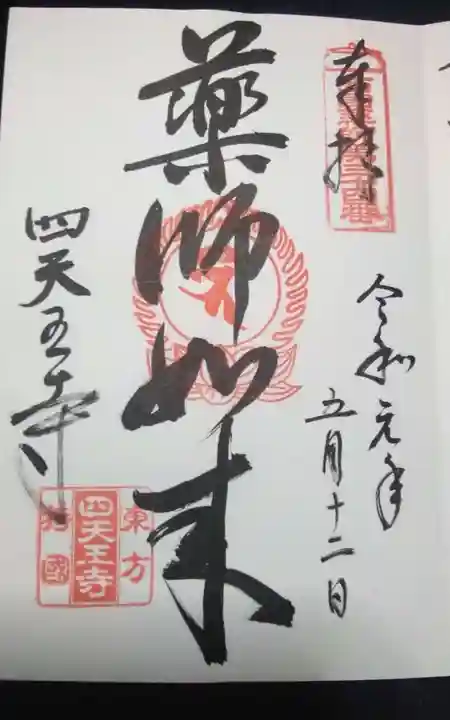 奉拝
令和元年
五月十二日
薬師如来
四天王寺
東方
四天王寺